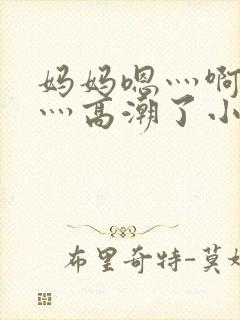 妈妈嗯灬啊
灬高潮了小
布里奇特-莫妮